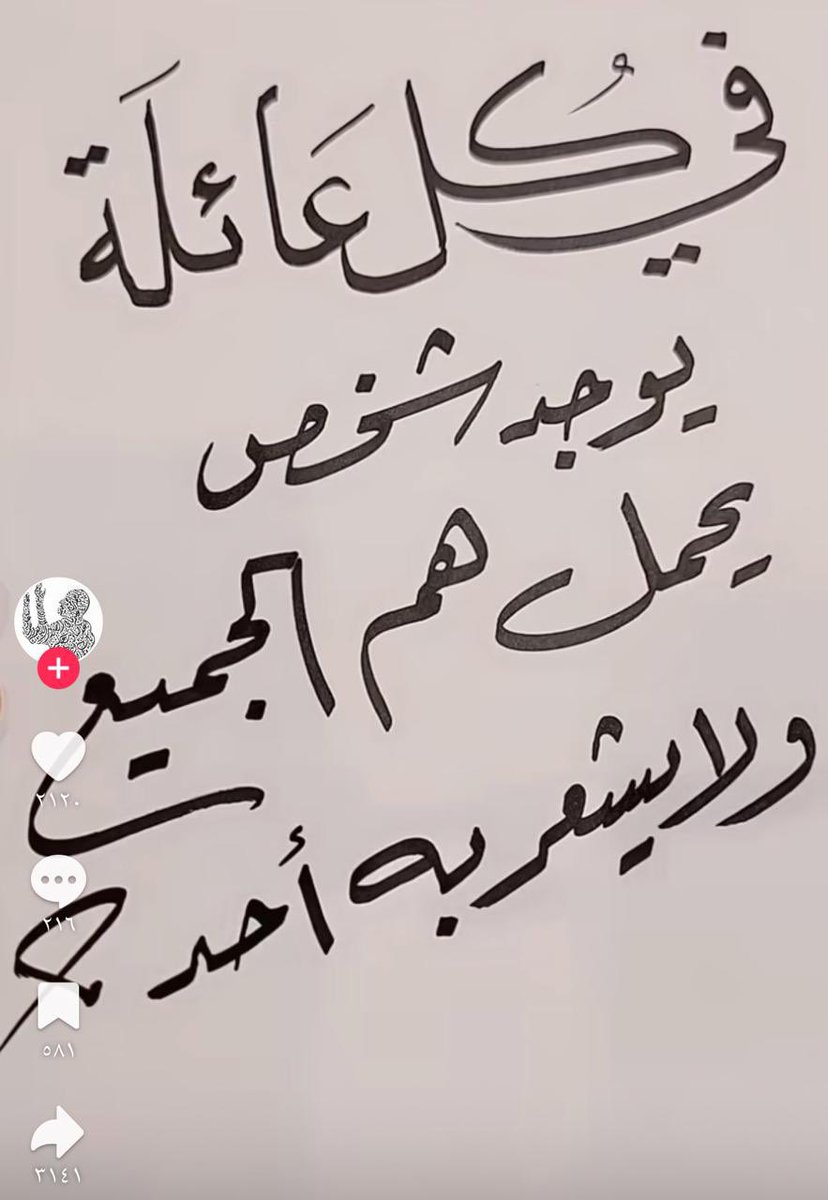 في كُل عَائلَة
يوجد شخص
يحمل هم الجميع
ولا يشعر به أحد
٢١٢٠
٢١٦
٥٨١
٣١٤١